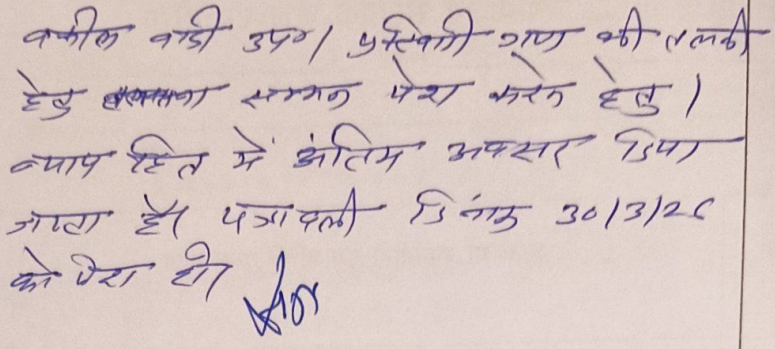 वकील वादी उप०। प्रतिवादी गण की तलबी
हेतु सम्मन पेश करने हेतु।
न्याय हित में अंतिम अवसर दिया
जाता है। पत्रावली दिनांक 30/3/26
को पेश हो।